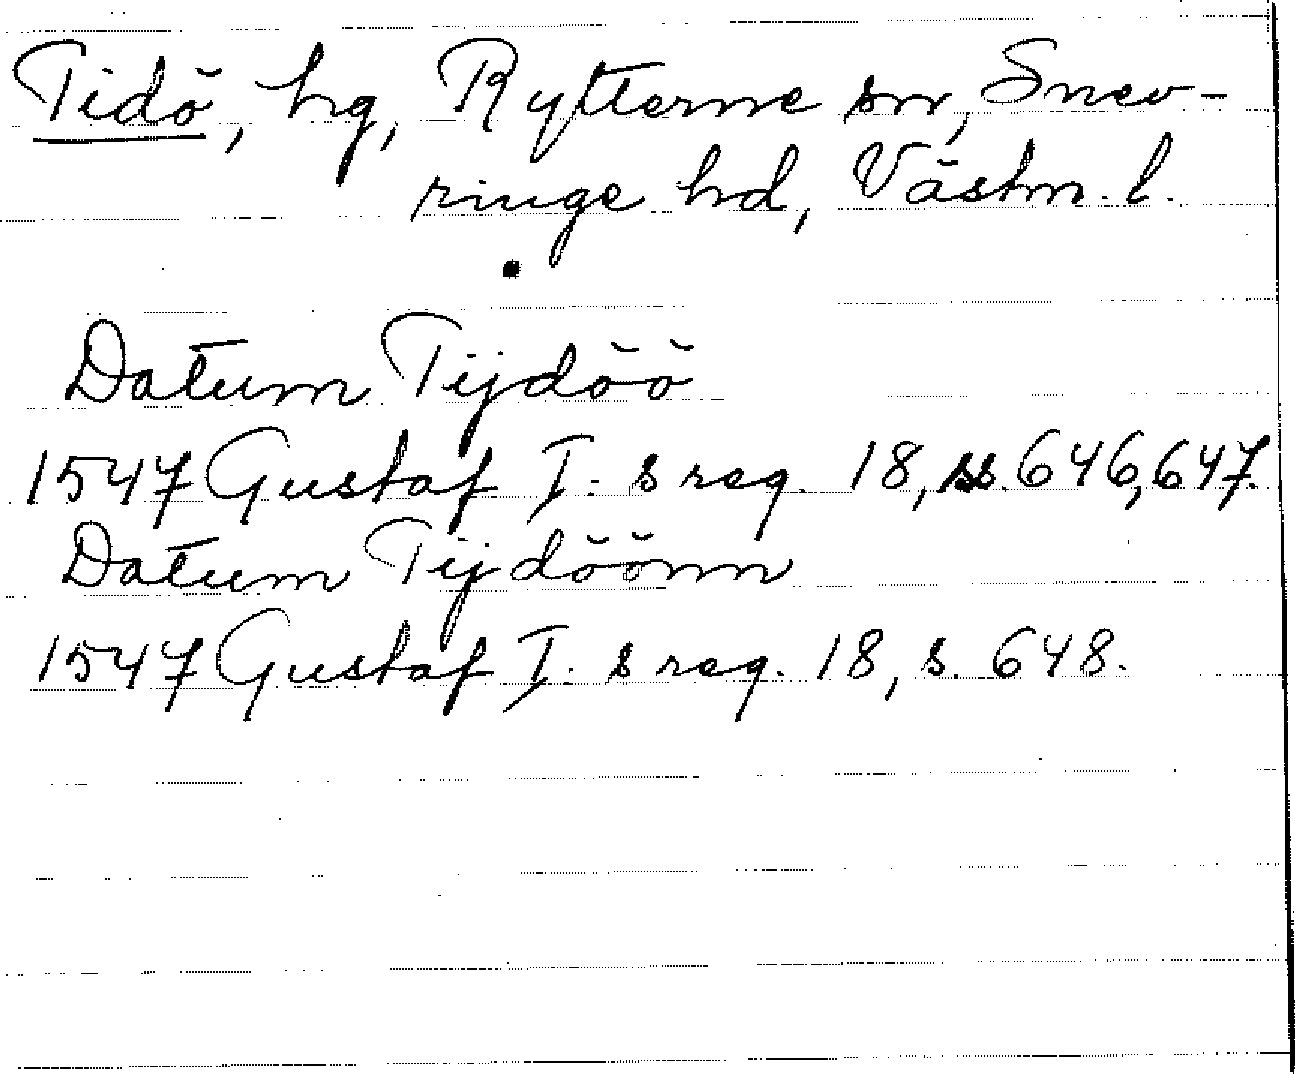 Tidö, hg, Rytterne sn, Snev-
ringe hd, Västm. l.
Datum Tijdöö
1547 Gustaf I:s reg. 18, ss. 646, 647.
Datum Tijdöönn
1547 Gustaf I:s reg. 18, s. 648.